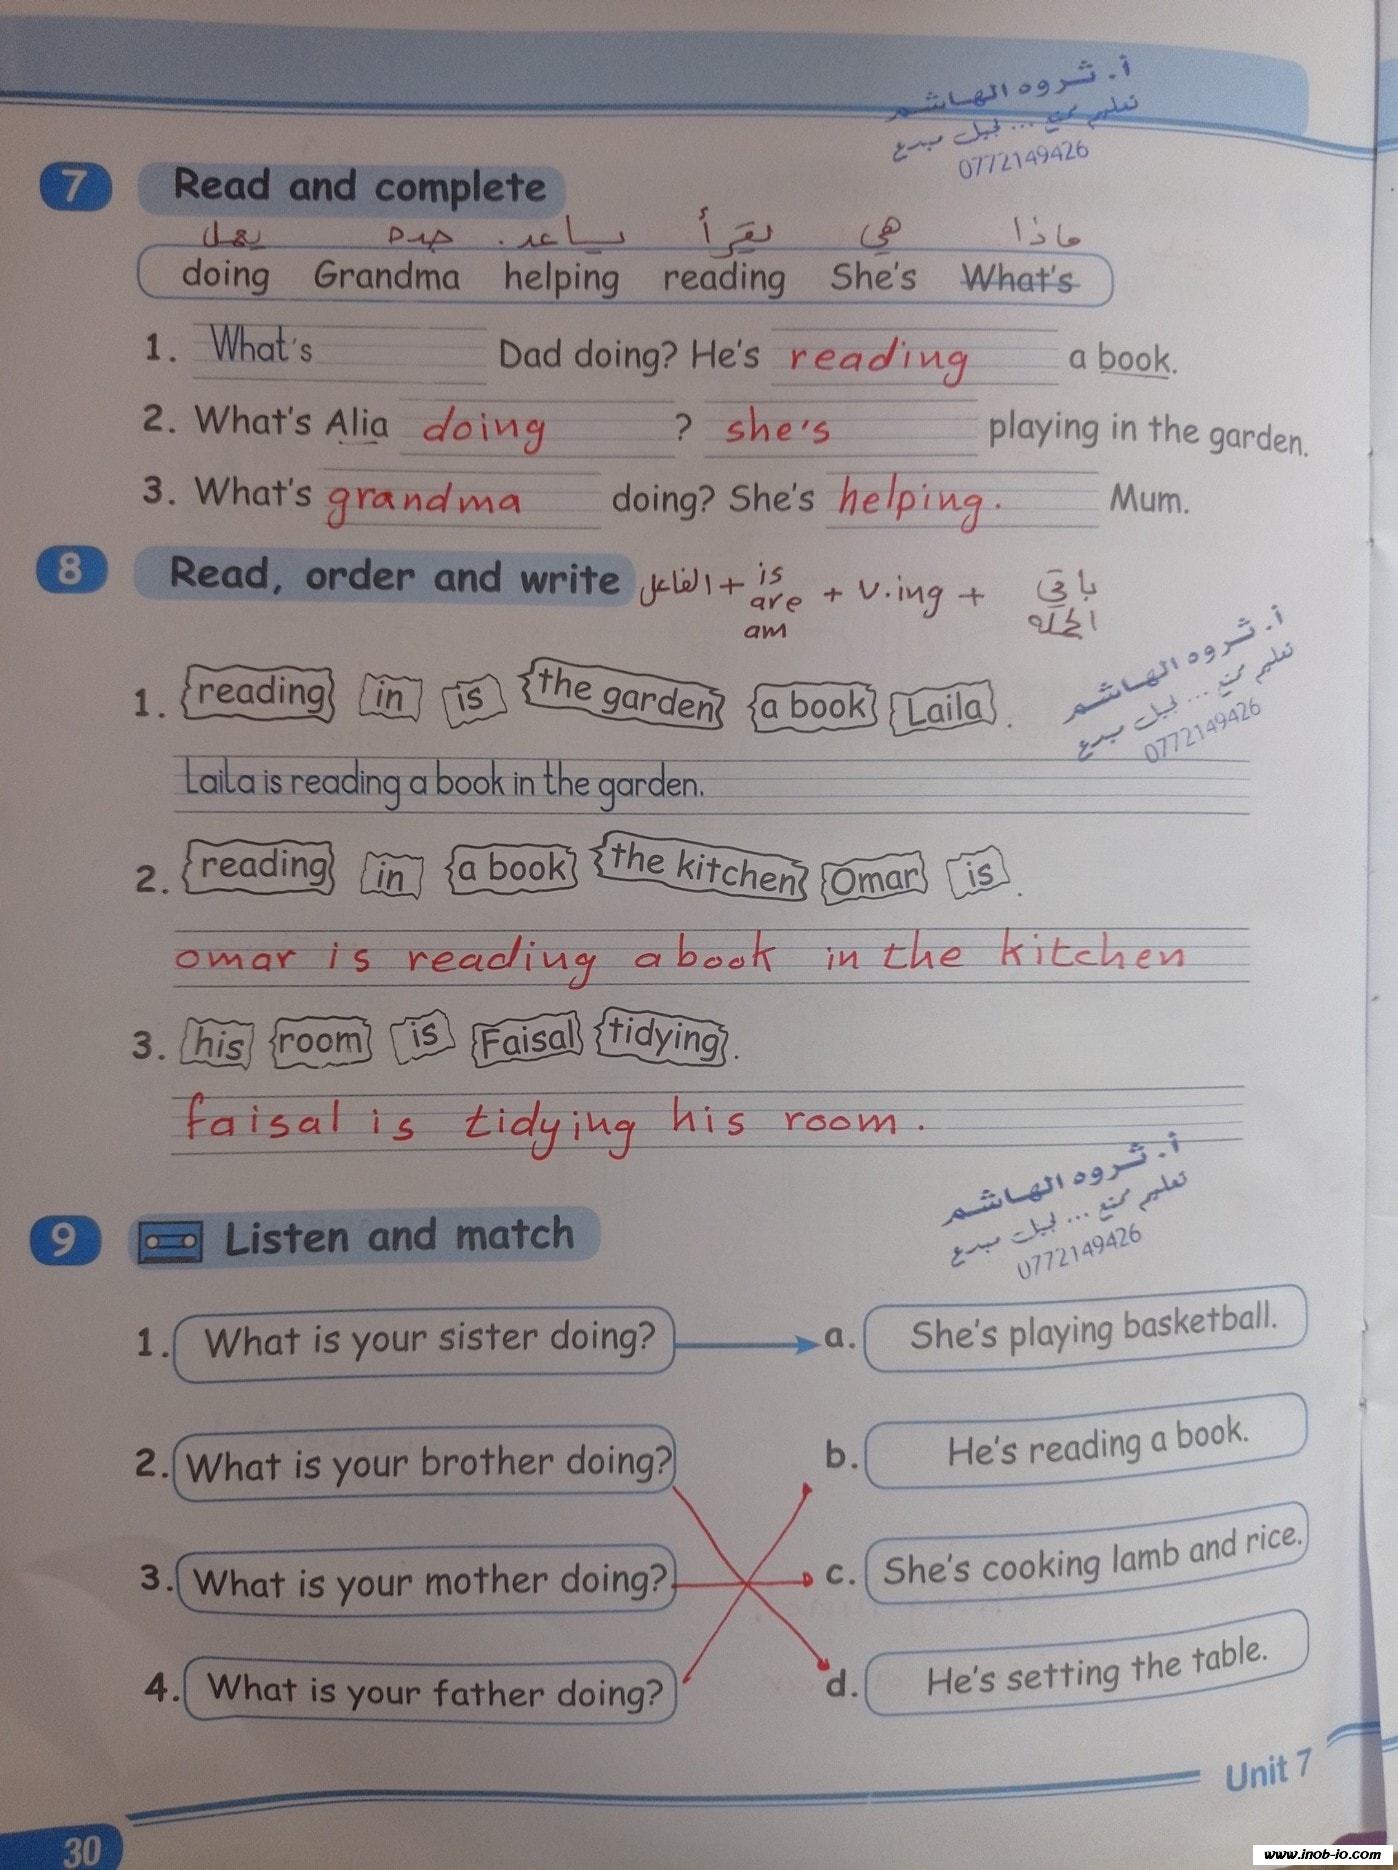 أ. ثروه الهاشم
تعليم ممتع ... لجيل مبدع
0772149426
7 Read and complete
يعمل جده يساعد يقرأ هي ماذا
doing Grandma helping reading She's What's
1. What's Dad doing? He's reading a book.
2. What's Alia doing ? she's playing in the garden.
3. What's grandma doing? She's helping. Mum.
8 Read, order and write الفاعل + is + v.ing + باقي
are الجملة
am
1. reading in is the garden a book Laila .
أ. ثروه الهاشم
تعليم ممتع ... لجيل مبدع
0772149426
Laila is reading a book in the garden.
2. reading in a book the kitchen Omar is .
omar is reading a book in the kitchen
3. his room is Faisal tidying .
faisal is tidying his room .
أ. ثروه الهاشم
تعليم ممتع ... لجيل مبدع
0772149426
9 Listen and match
1. What is your sister doing? a. She's playing basketball.
2. What is your brother doing? b. He's reading a book.
3. What is your mother doing? c. She's cooking lamb and rice.
4. What is your father doing? d. He's setting the table.
Unit 7
30
www.inob-io.com